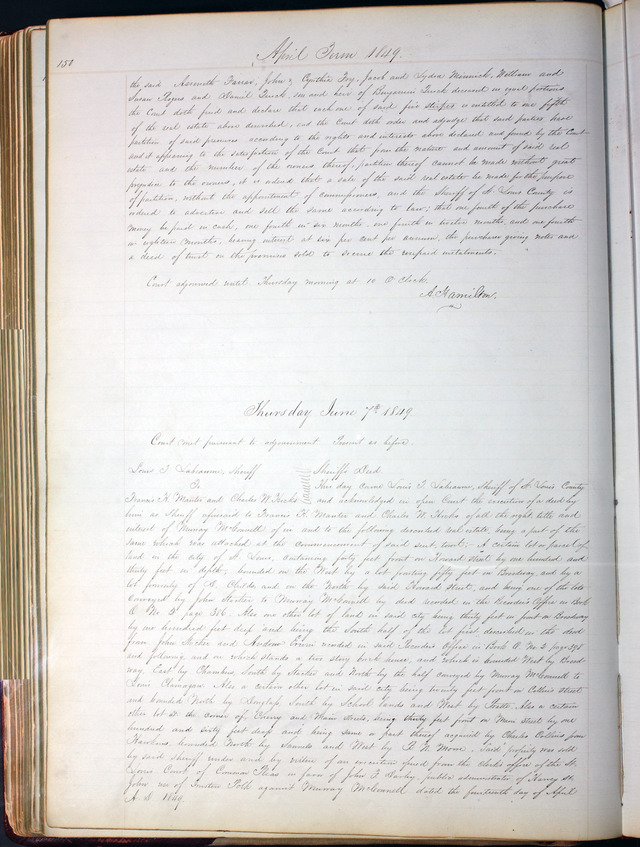 150
April Term 1849.
the said Asenith Farrar, John & Cynthia Foy, Jacob and Lydia Minnick, William and
Susan Rogers and Daniel Quick, son and heir of Benjamin Quick deceased in equal portions
the Court doth find and declare that each one of said five is entitled to one fifth
of the real estate above described, and the Court doth order and adjudge that said parties have
partition of said premises according to the rights and interests above declared and found by the Court
and it appearing to the satisfaction of the Court that from the nature and amount of said real
estate and the number of the owners thereof, partition thereof cannot be made without great
prejudice to the owners, it is ordered that a sale of the said real estate be made for the purpose
of partition, without the appointment of commissioners, and the Sheriff of St. Louis County is
ordered to advertise and sell the same according to law; that one fourth of the purchase
money be paid in cash, one fourth in six months, one fourth in twelve months, and one fourth
in eighteen months, bearing interest at six per cent per annum, the purchaser giving notes and
a deed of trust on the premises sold to secure the unpaid instalments.
Court adjourned until Thursday morning at 10 O'Clock.
A. Hamilton.
Thursday June 7th 1849
Court met pursuant to adjournment Present as before.
Louis T. Labeaume, Sheriff
To
Francis K. Manter and Charles W. Hicks
Sheriffs Deed
This day came Louis T. Labeaume, Sheriff of St. Louis County
and acknowledged in open Court the execution of a deed by
him as Sheriff aforesaid to Francis K. Manter and Charles W. Hicks of all the right, title and
interest of Murray McConnell of in and to the following described real estate, being a part of the
same which was attached at the commencement of said suit, to wit:- A certain lot or parcel of
land in the city of St. Louis, containing forty feet front on Howard street by one hundred and
thirty feet in depth; bounded on the West by a lot fronting fifty feet on Broadway, and by a
lot formerly of and on the North by said Howard Street, and being one of the lots
conveyed by John to Murray McConnell by deed recorded in the Recorder's Office in Book
O No 3 page 356. Also one other lot of land in said city being thirty feet in front on Broadway
by one hundred feet deep and being the South half of the lot first described in the deed
from John and Andrew recorded in said Recorder's Office in Book O. No. 2 page 298
and following, and on which stands a two story brick house, and which is bounded West by Broad-
way, East by Chambers, South by and North by the half conveyed by Murray McConnell to
Louis Also a certain other lot in said city being twenty feet front on Collins Street
and bounded North by South by School lands and West by Also a certain
other lot at the corner of and Main streets, being thirty feet front on Main Street by one
hundred and sixty feet deep and being same or part thereof acquired by Charles Collins from
Hawkins, bounded North by Samuels and West by Said property was sold
by said Sheriff under and by virtue of an execution issued from the clerk's office of the St.
Louis Court of Common Pleas in favor of John F. Darby, public administrator of Henry St.
John use of against Murray McConnell dated the fourteenth day of April
A.D. 1849.